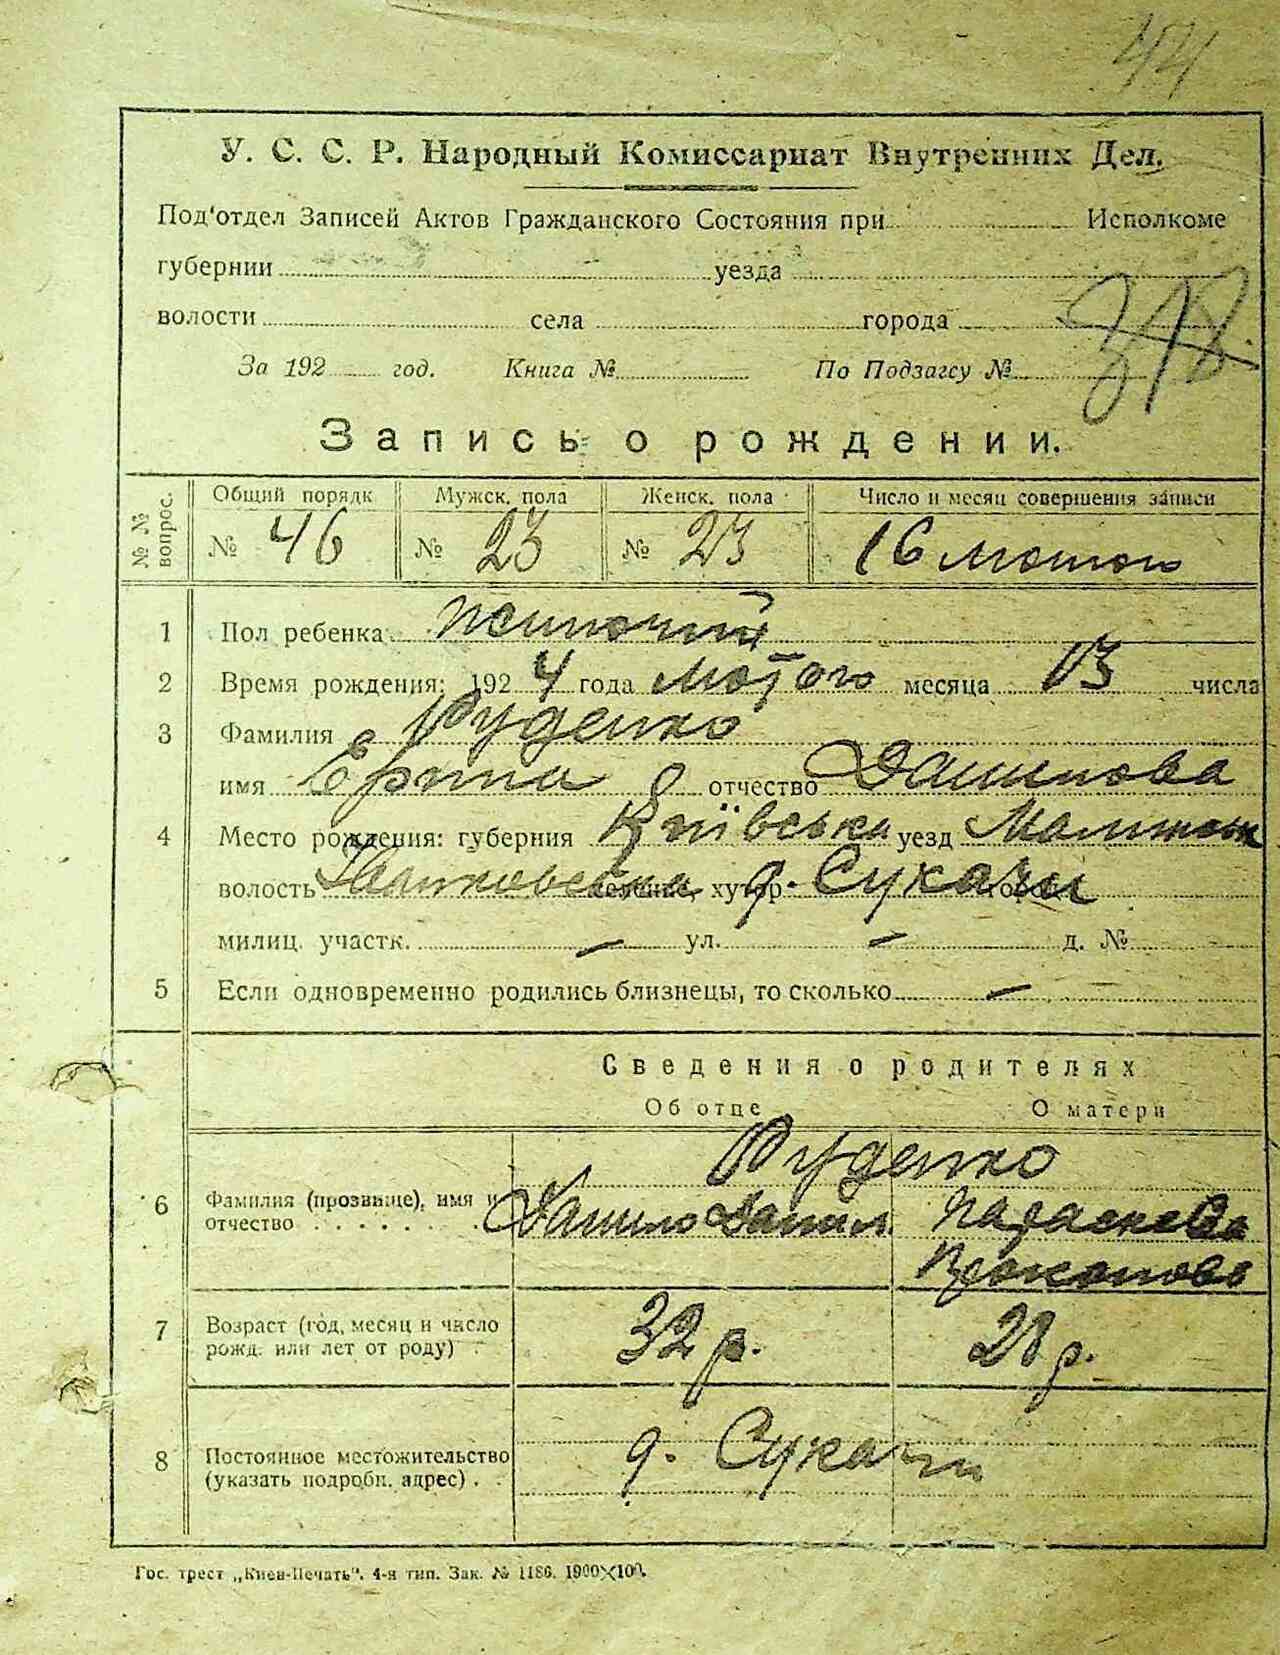 44
У. С. С. Р. Народный Комиссариат Внутренних Дел.
Под'отдел Записей Актов Гражданского Состояния при Исполкоме
губернии уезда
волости села города
318
За 192 год. Книга № По Подзагсу №
Запись о рождении.
№ № вопрос. Общий порядк Мужск. пола Женск. пола Число и месяц совершения записи
№ 46 № 23 № 23 16 лютого
1 Пол ребенка жиночий
2 Время рождения: 1924 года лютого месяца 13 числа
3 Фамилия Руденко
имя отчество Данилова
4 Место рождения: губерния Київська уезд
волость селение, хутор д. Сукачи
милиц. участк. — ул. — д. №
5 Если одновременно родились близнецы, то сколько —
Сведения о родителях
Об отце О матери
Руденко
6 Фамилия (прозвище), имя и отчество Данило Данил. Параскева
Прокопова
7 Возраст (год, месяц и число рожд. или лет от роду) 32 р. 28 р.
8 Постоянное местожительство (указать подробн. адрес) д. Сукачи
Гос. трест „Киев-Печать". 4-я тип. Зак. № 1186. 1900×100.